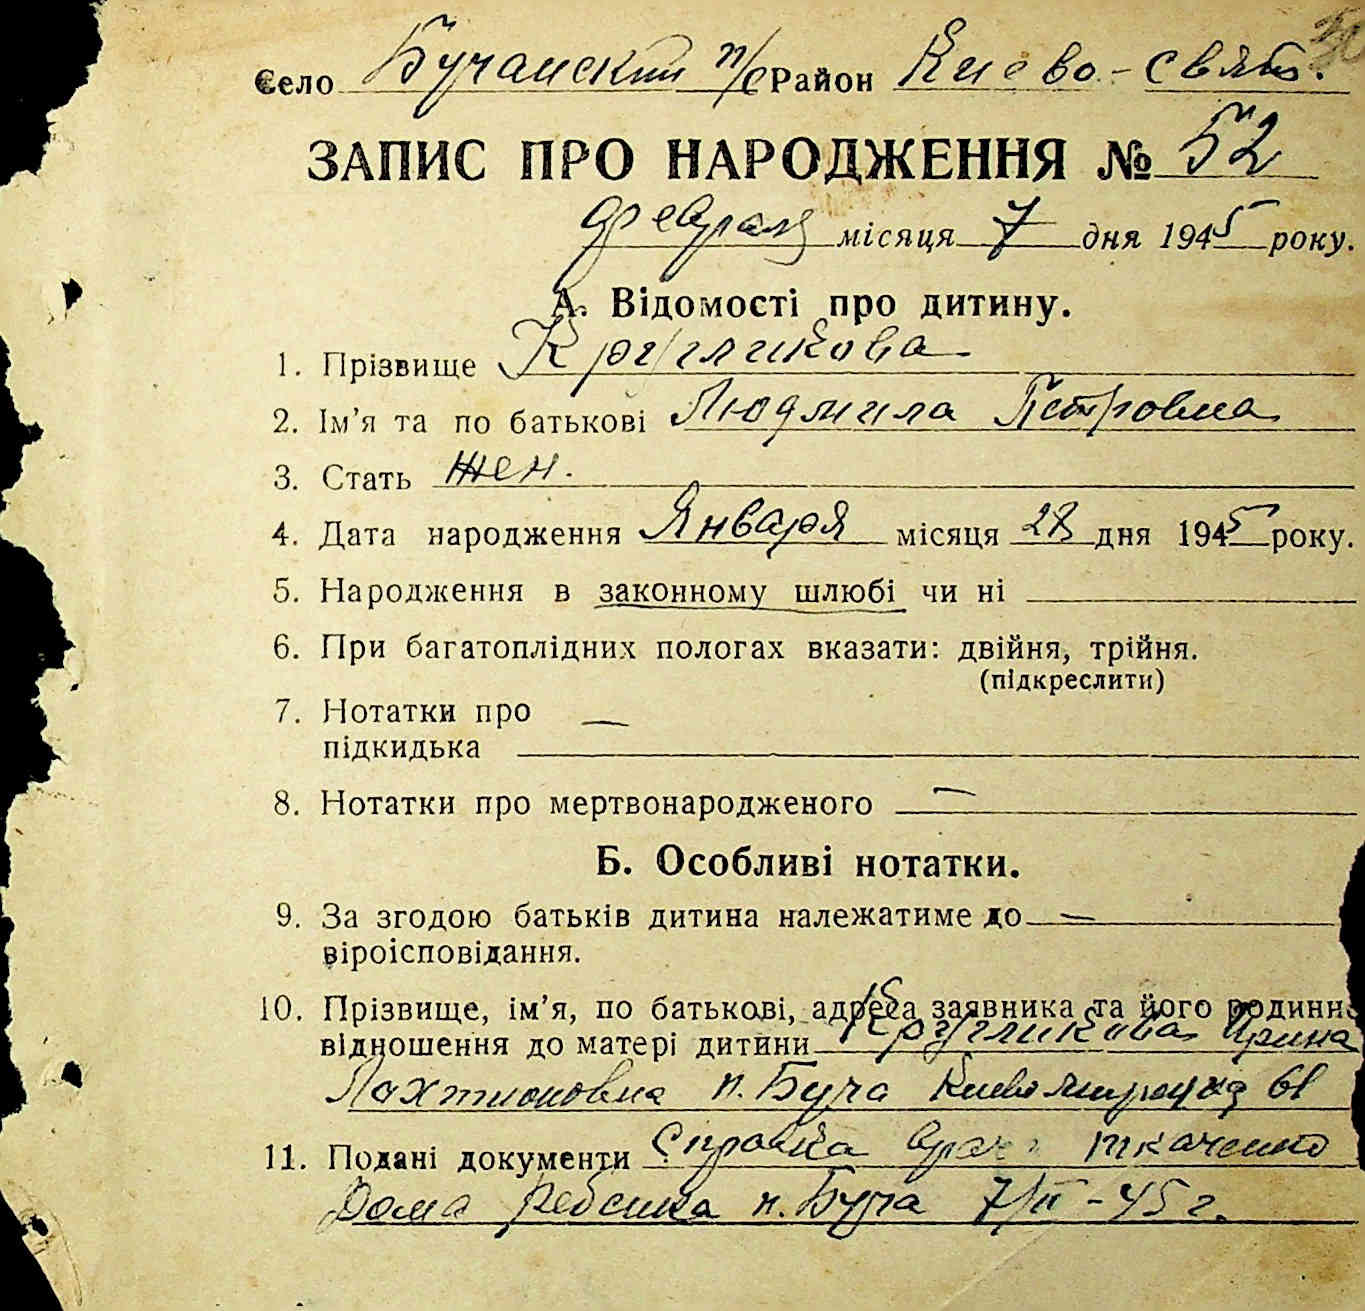 Село Бучанский п/с Район Киево-свят.
ЗАПИС ПРО НАРОДЖЕННЯ № 52
февраля місяця 7 дня 1945 року.
А. Відомості про дитину.
1. Прізвище Кругликова
2. Ім'я та по батькові Людмила Петровна
3. Стать жен.
4. Дата народження Января місяця 28 дня 1945 року.
5. Народження в законному шлюбі чи ні
6. При багатоплідних пологах вказати: двійня, трійня.
(підкреслити)
7. Нотатки про —
підкидька
8. Нотатки про мертвонародженого —
Б. Особливі нотатки.
9. За згодою батьків дитина належатиме до —
віроісповідання.
10. Прізвище, ім'я, по батькові, адреса заявника та його родинне
відношення до матері дитини Кругликова Ирина
п. Буча Киево 61
11. Подані документи Справка врача Ткаченко
Дома Ребенка п. Буча 7/II-45 г.